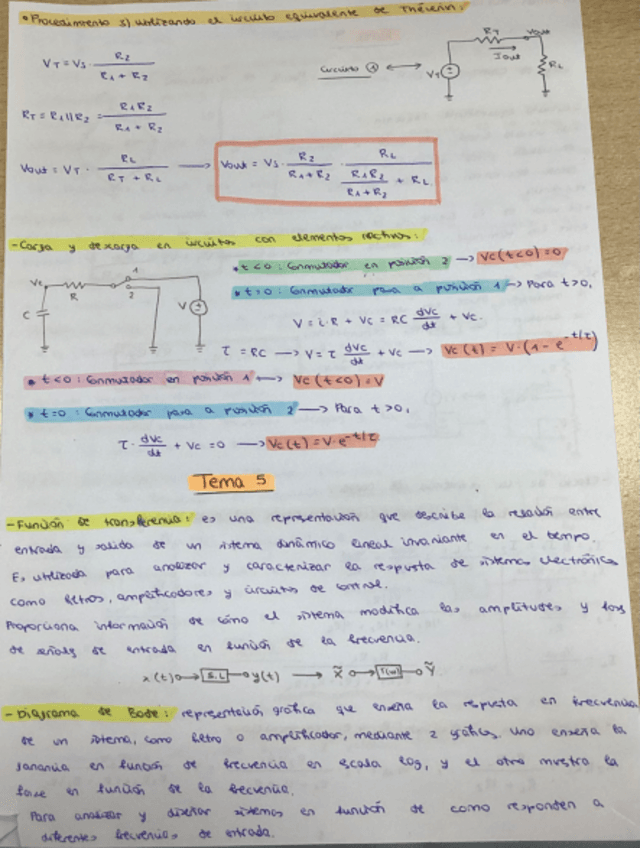 • Procedimiento 3) utilizando el circuito equivalente de Thévenin:
V_T = V_S · R_2 / (R_1 + R_2)
Circuito 1 ⟷
R_T Vout
Iout
V_T R_L
R_T = R_1 || R_2 = R_1 R_2 / (R_1 + R_2)
Vout = V_T · R_L / (R_T + R_L) → Vout = V_S · R_2 / (R_1 + R_2) · R_L / (R_1 R_2 / (R_1 + R_2) + R_L)
- Carga y descarga en circuitos con elementos reactivos:
• t<0: Conmutador en posición 2 → Vc(t<0) = 0
• t=0: Conmutador pasa a posición 1 → Para t>0,
Vc R 1 2 C V
V = i·R + Vc = RC dVc/dt + Vc.
τ = RC → V = τ dVc/dt + Vc → Vc(t) = V·(1 - e^-t/τ)
• t<0: Conmutador en posición 1 → Vc(t<0) = V
• t=0: Conmutador pasa a posición 2 → Para t>0,
τ · dVc/dt + Vc = 0 → Vc(t) = V·e^-t/τ
Tema 5
- Función de transferencia: es una representación que describe la relación entre
entrada y salida de un sistema dinámico lineal invariante en el tiempo.
Es utilizada para analizar y caracterizar la respuesta de sistemas electrónicos
como filtros, amplificadores y circuitos de control.
Proporciona información de cómo el sistema modifica las amplitudes y fases
de señales de entrada en función de la frecuencia.
x(t) S.L y(t) → X̃ T(ω) Ỹ
- Diagrama de Bode: representación gráfica que enseña la respuesta en frecuencia
de un sistema, como filtro o amplificador, mediante 2 gráficos. Uno enseña la
ganancia en función de frecuencia en escala log, y el otro muestra la
fase en función de la frecuencia.
Para analizar y diseñar sistemas en función de como responden a
diferentes frecuencias de entrada.